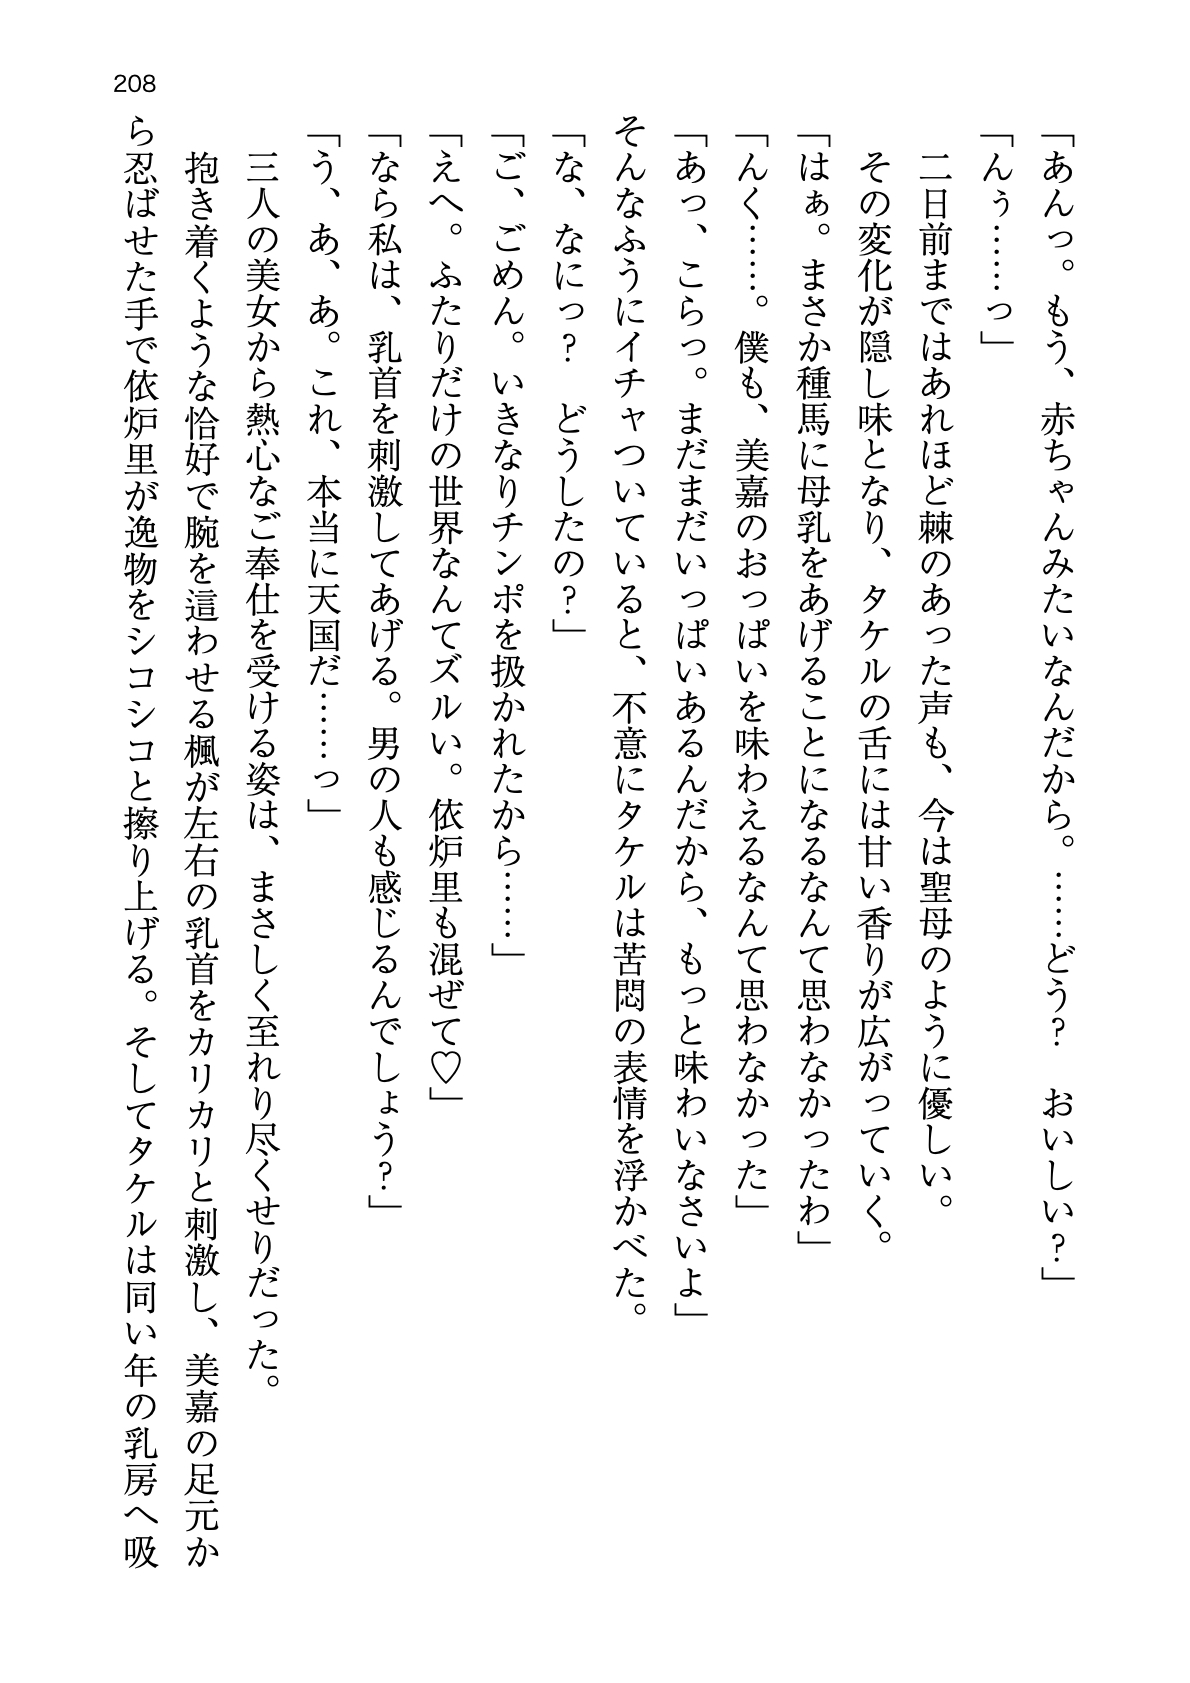 208
「あんっ。もう、赤ちゃんみたいなんだから。……どう？　おいしい？」
「んぅ……っ」
　二日前まではあれほど棘のあった声も、今は聖母のように優しい。
　その変化が隠し味となり、タケルの舌には甘い香りが広がっていく。
「はぁ。まさか種馬に母乳をあげることになるなんて思わなかったわ」
「んく……。僕も、美嘉のおっぱいを味わえるなんて思わなかった」
「あっ、こらっ。まだまだいっぱいあるんだから、もっと味わいなさいよ」
そんなふうにイチャついていると、不意にタケルは苦悶の表情を浮かべた。
「な、なにっ？　どうしたの？」
「ご、ごめん。いきなりチンポを扱かれたから……」
「えへ。ふたりだけの世界なんてズルい。依炉里も混ぜて♡」
「なら私は、乳首を刺激してあげる。男の人も感じるんでしょう？」
「う、あ、あ。これ、本当に天国だ……っ」
　三人の美女から熱心なご奉仕を受ける姿は、まさしく至れり尽くせりだった。
　抱き着くような恰好で腕を這わせる楓が左右の乳首をカリカリと刺激し、美嘉の足元か
ら忍ばせた手で依炉里が逸物をシコシコと擦り上げる。そしてタケルは同い年の乳房へ吸